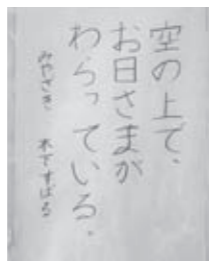 空の上で、
お日さまが
わらっている。
みやざき 木下すばる